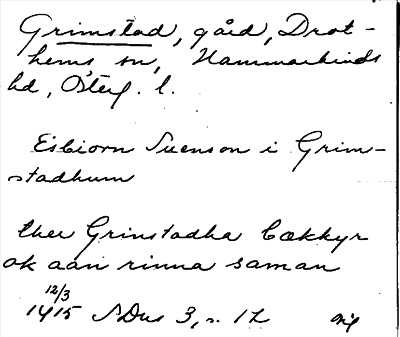 Grimstad, gård, Drot-
hems sn, Hammarkinds
hd, Österg. l.
Esbiorn Suenson i Grim-
stadhum
thee Grinstadha bækkyr
ok aan rinna saman
12/3
1415 SDns 3, s. 12